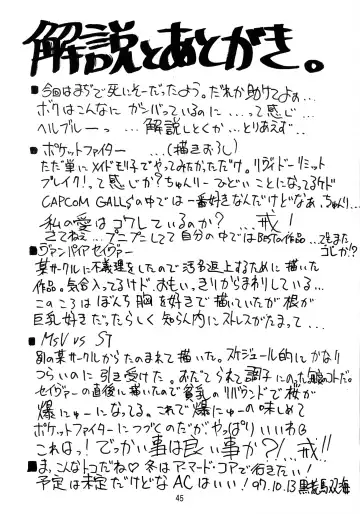 解説とあとがき。
■今回はまぢで死にそーだったよう。だれか助けてよぉ…
ボクはこんなに ガンバっているのに …って感じ…
ヘルプルーっ …解説しとくか…とりあえず‥
■ポケットファイター …(描きおろし)
ただ単にメイドモリ子でやってみたかっただけ。リヴァイドーリミット
ブレイク!。て感じか?ちゅんりーひどいことになってるケド
CAPCOM GALSの中では一番好きなんだけどなぁ、ちゅんり…
私の愛はコワしているのか? …戒!
さておき… プニプニしてて自分の中ではBestな作品…でもまたコレか!?
■ヴァンパイアセイヴァー
某サークルに不義理をしたので汚名返上するために描いた
作品。気合入ってるけど、おもいっきりからまわりしている…
このころはぼんち胸を好きで描いていたが根が
巨乳好きだったらしく知らん内にストレスがたまって…
■MSV VS ST
別の某サークルからたのまれて描いた。スケジュール的にかなり
つらいのに引き受けた。おだてられて調子にのった報のコトだ。
セイヴァーの直後に描いたので貧乳のリバウンドで桜が
爆にゅーになってる。これで爆にゅーの味しめて
ポケットファイターにつづくのだがやっぱりいいわ
これはっ!でっかい事は良い事か?!…戒!!
■ま、こんなトコだね♡冬はアーマード・コアで行きたい!
予定は未定だけどな ACはいい!'97.10.13 黒荒馬双海
45